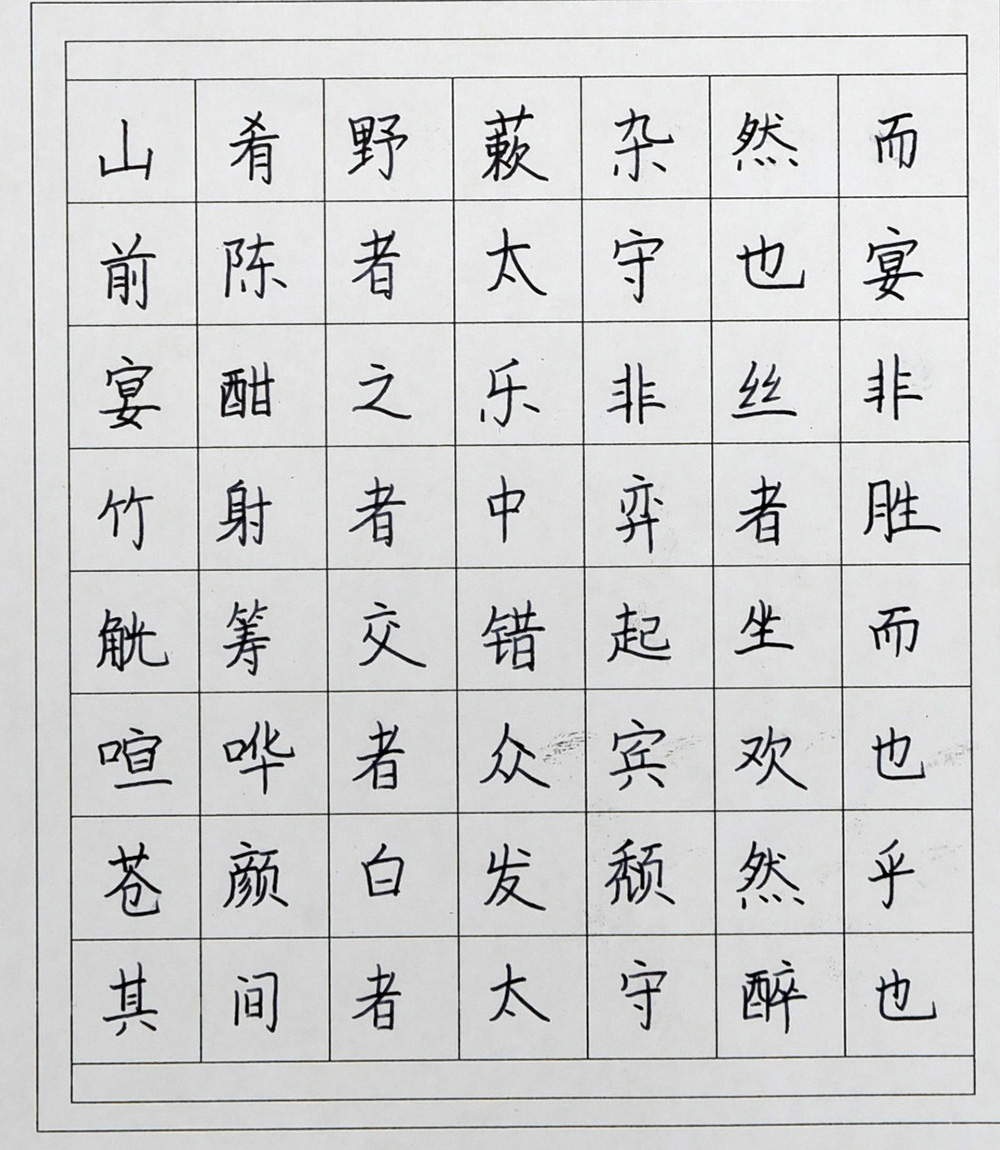 山肴野蔌杂然而
前陈者太守也宴
宴酣之乐非丝非
竹射者中弈者胜
觥筹交错起坐而
喧哗者众宾欢也
苍颜白发颓然乎
其间者太守醉也